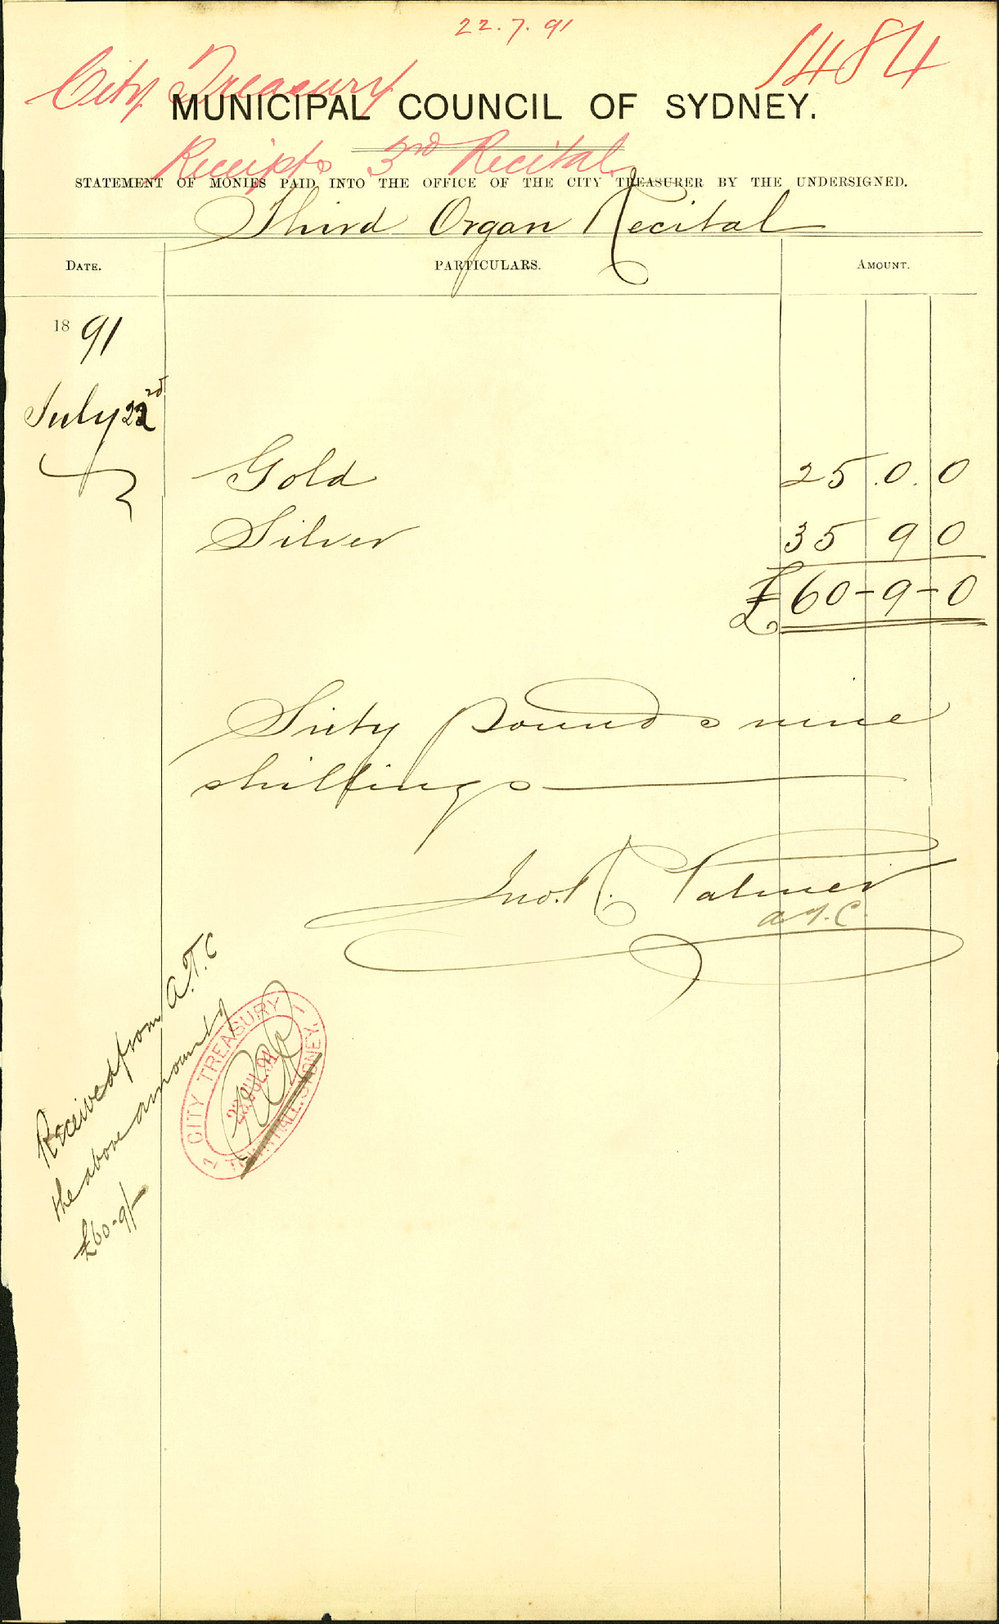 22.7.91
1484
City Treasury
MUNICIPAL COUNCIL OF SYDNEY.
Receipts 3rd Recital
STATEMENT OF MONIES PAID INTO THE OFFICE OF THE CITY TREASURER BY THE UNDERSIGNED.
Third Organ Recital
DATE. PARTICULARS. AMOUNT.
1891
July 22nd
Gold 25.0.0
Silver 35 9 0
£60-9-0
Sixty pounds nine
shillings
Jno. R. Palmer
A.T.C.
Received from A.T.C
the above amount of
£60-9/-
CITY TREASURY
22 JUL 91
TOWN HALL, SYDNEY.